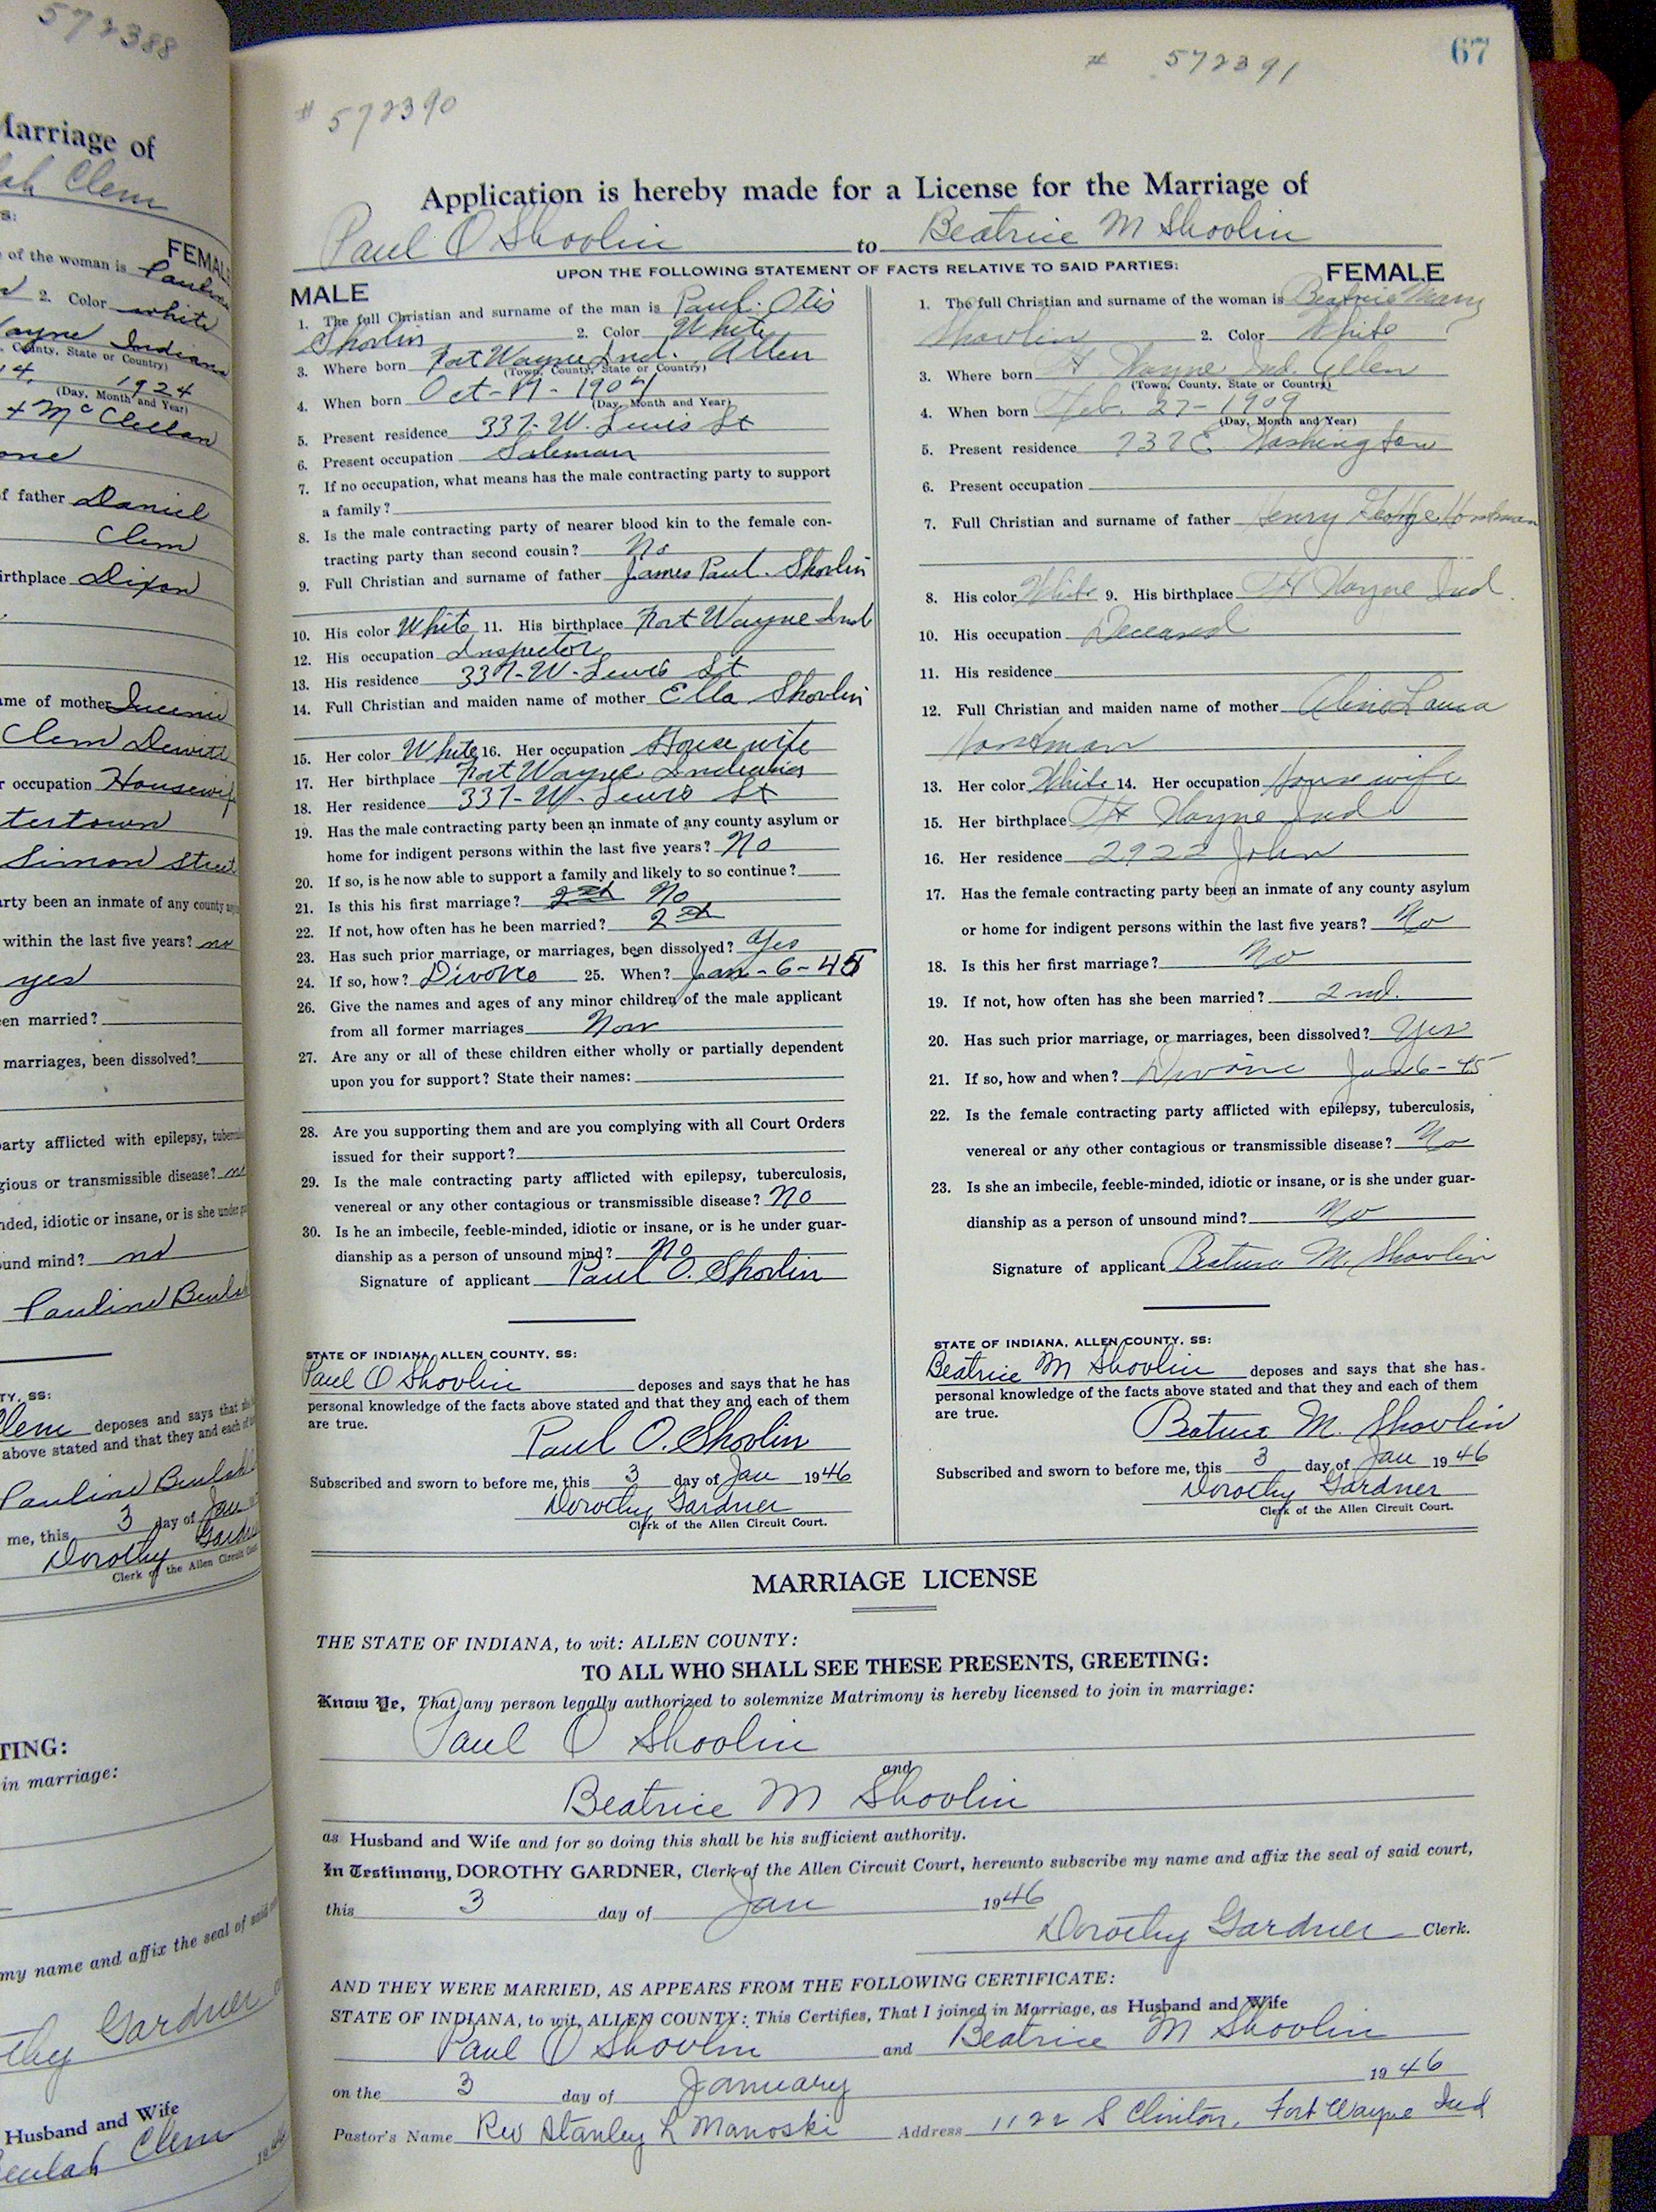 572388
Marriage of
Clem
FEMALE
of the woman is Pauline
2. Color white
Wayne Indiana
County, State or Country)
14, 1924
(Day, Month and Year)
+ McClellan
none
of father Daniel
Clem
birthplace Dixon
name of mother
Clem Dewitt
occupation Housewife
Simon Street
party been an inmate of any county
within the last five years? no
yes
been married?
marriages, been dissolved?
party afflicted with epilepsy,
gious or transmissible disease? no
nded, idiotic or insane, or is she under
ound mind? no
Pauline Beulah
TY, SS:
Clem deposes and says that
above stated and that they and each of
Pauline Beulah
me, this 3 day of Jan
Dorothy Gardner
Clerk of the Allen Circuit
TING:
in marriage:
my name and affix the seal of said
Gardner
Husband and Wife
Beulah Clem
67
# 572391
# 572390
Application is hereby made for a License for the Marriage of
Paul O Shovlin to Beatrice M Shovlin
UPON THE FOLLOWING STATEMENT OF FACTS RELATIVE TO SAID PARTIES:
MALE
1. The full Christian and surname of the man is Paul. Otis
Shovlin 2. Color White
3. Where born Fort Wayne Ind. Allen
(Town, County, State or Country)
4. When born Oct-19-1904
(Day, Month and Year)
5. Present residence 337-W. Lewis St
6. Present occupation Saleman
7. If no occupation, what means has the male contracting party to support
a family?
8. Is the male contracting party of nearer blood kin to the female con-
tracting party than second cousin? No
9. Full Christian and surname of father James Paul. Shovlin
10. His color White 11. His birthplace Fort Wayne Ind
12. His occupation Inspector
13. His residence 337-W-Lewis St
14. Full Christian and maiden name of mother Ella Shovlin
15. Her color White 16. Her occupation House wife
17. Her birthplace Fort Wayne Indiana
18. Her residence 337-W-Lewis St
19. Has the male contracting party been an inmate of any county asylum or
home for indigent persons within the last five years? No
20. If so, is he now able to support a family and likely to so continue?
21. Is this his first marriage? 2nd No
22. If not, how often has he been married? 2nd
23. Has such prior marriage, or marriages, been dissolved? Yes
24. If so, how? Divorce 25. When? Jan-6-45
26. Give the names and ages of any minor children of the male applicant
from all former marriages Non
27. Are any or all of these children either wholly or partially dependent
upon you for support? State their names:
28. Are you supporting them and are you complying with all Court Orders
issued for their support?
29. Is the male contracting party afflicted with epilepsy, tuberculosis,
venereal or any other contagious or transmissible disease? No
30. Is he an imbecile, feeble-minded, idiotic or insane, or is he under guar-
dianship as a person of unsound mind? No
Signature of applicant Paul O. Shovlin
STATE OF INDIANA, ALLEN COUNTY, SS:
Paul O Shovlin deposes and says that he has
personal knowledge of the facts above stated and that they and each of them
are true.
Paul O. Shovlin
Subscribed and sworn to before me, this 3 day of Jan 1946
Dorothy Gardner
Clerk of the Allen Circuit Court.
FEMALE
1. The full Christian and surname of the woman is Beatrice Mary
Shovlin 2. Color White
3. Where born Ft Wayne Ind. Allen
(Town, County, State or Country)
4. When born Feb. 27-1909
(Day, Month and Year)
5. Present residence 737 E. Washington
6. Present occupation
7. Full Christian and surname of father Henry George Horstman
8. His color White 9. His birthplace Ft Wayne Ind.
10. His occupation Deceased
11. His residence
12. Full Christian and maiden name of mother Laura
Horstman
13. Her color White 14. Her occupation House wife
15. Her birthplace Ft Wayne Ind
16. Her residence 2922 John
17. Has the female contracting party been an inmate of any county asylum
or home for indigent persons within the last five years? No
18. Is this her first marriage? No
19. If not, how often has she been married? 2nd.
20. Has such prior marriage, or marriages, been dissolved? Yes
21. If so, how and when? Divorce Jan 6-45
22. Is the female contracting party afflicted with epilepsy, tuberculosis,
venereal or any other contagious or transmissible disease? No
23. Is she an imbecile, feeble-minded, idiotic or insane, or is she under guar-
dianship as a person of unsound mind? No
Signature of applicant Beatrice M. Shovlin
STATE OF INDIANA, ALLEN COUNTY, SS:
Beatrice M Shovlin deposes and says that she has
personal knowledge of the facts above stated and that they and each of them
are true.
Beatrice M. Shovlin
Subscribed and sworn to before me, this 3 day of Jan 1946
Dorothy Gardner
Clerk of the Allen Circuit Court.
MARRIAGE LICENSE
THE STATE OF INDIANA, to wit: ALLEN COUNTY:
TO ALL WHO SHALL SEE THESE PRESENTS, GREETING:
Know Ye, That any person legally authorized to solemnize Matrimony is hereby licensed to join in marriage:
Paul O Shovlin
and
Beatrice M Shovlin
as Husband and Wife and for so doing this shall be his sufficient authority.
In Testimony, DOROTHY GARDNER, Clerk of the Allen Circuit Court, hereunto subscribe my name and affix the seal of said court,
this 3 day of Jan 1946
Dorothy Gardner Clerk.
AND THEY WERE MARRIED, AS APPEARS FROM THE FOLLOWING CERTIFICATE:
STATE OF INDIANA, to wit, ALLEN COUNTY: This Certifies, That I joined in Marriage, as Husband and Wife
Paul O Shovlin and Beatrice M Shovlin
on the 3 day of January 1946
Pastor's Name Rev Stanley L Manoski Address 1122 S Clinton, Fort Wayne Ind